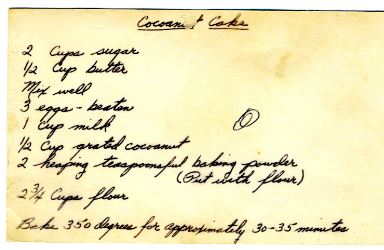 Cocoanut Cake
2 Cups sugar
1/2 Cup butter
Mix well
3 eggs - beaten
1 Cup milk
1/2 Cup grated cocoanut
2 heaping teaspoonsful baking powder
(Put with flour)
2 3/4 Cups flour
Bake 350 degrees for approximately 30-35 minutes